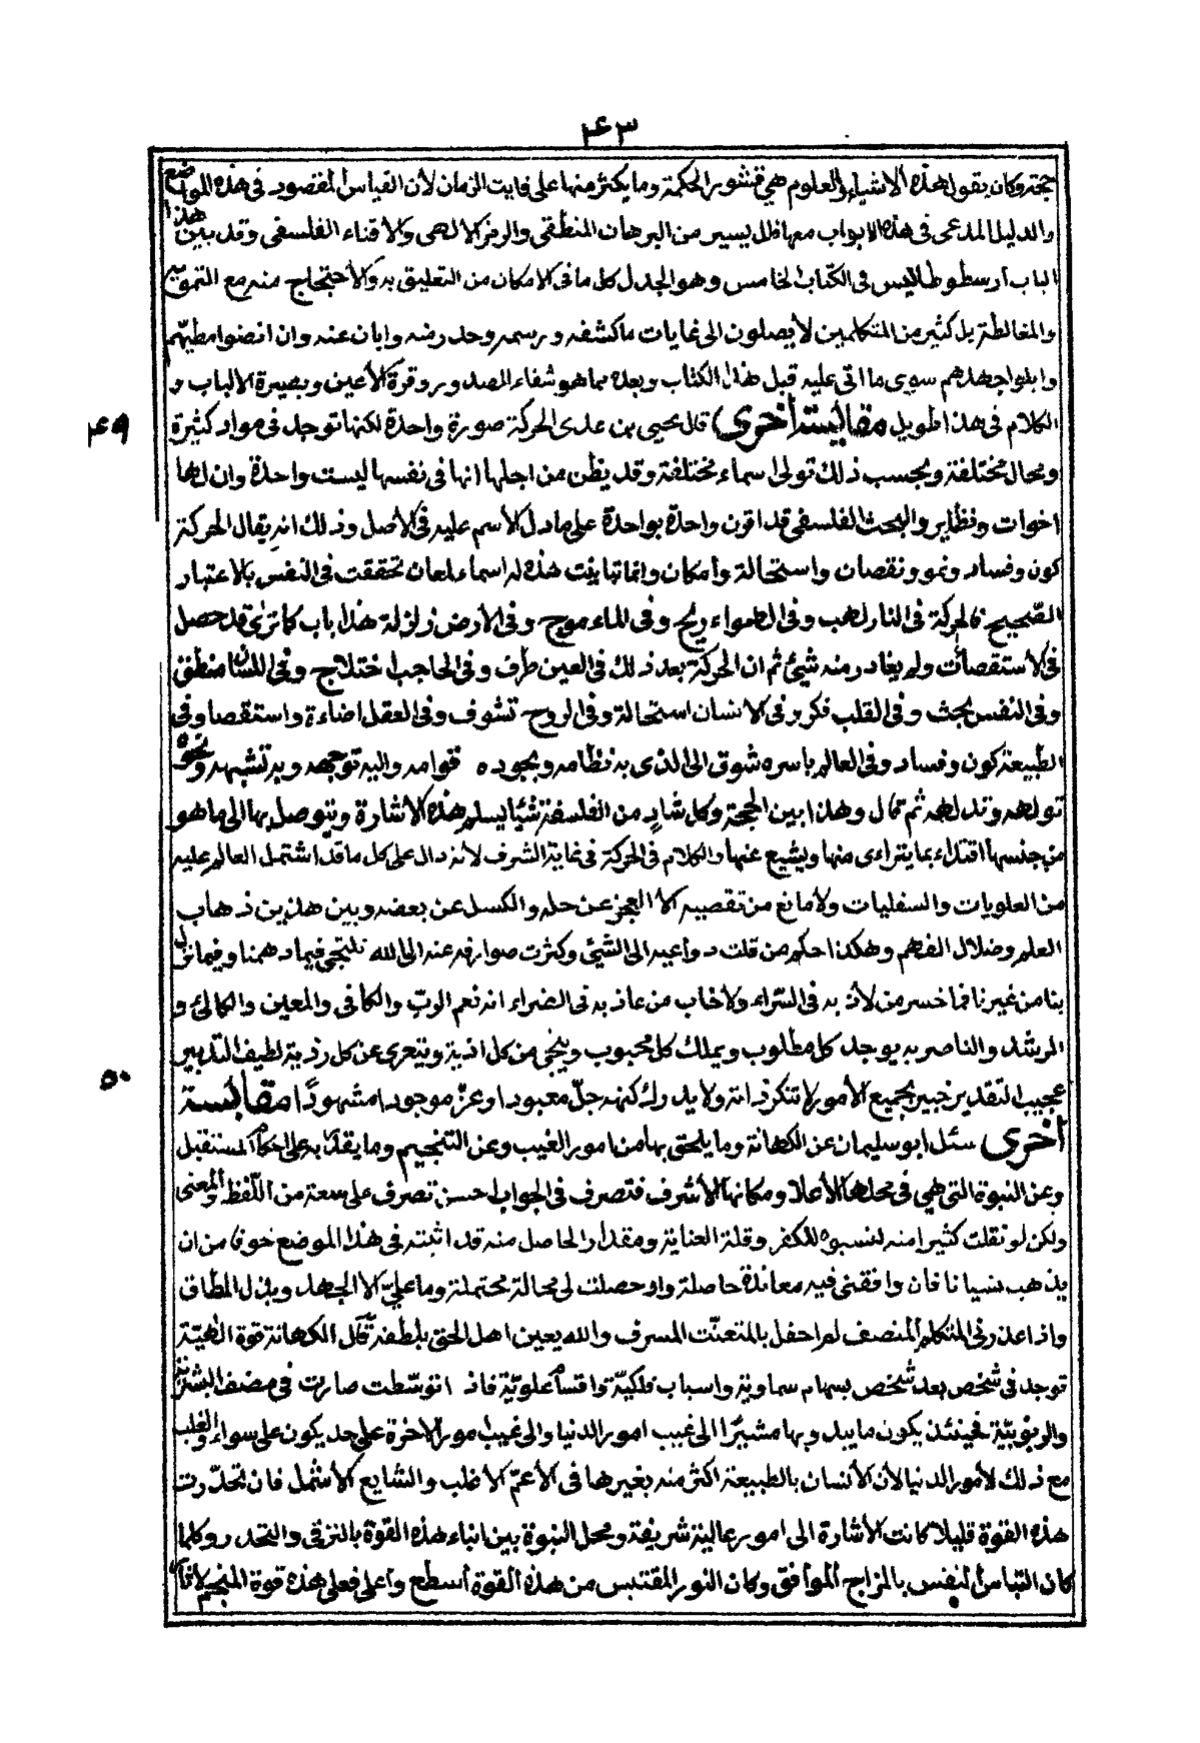 ٤٣
حجة وكان يقول هذه الأشياء والعلوم هي قشور الحكمة وما يكثر منها على فايت الزمان لأن القياس المقصود في هذه المواضع
والدليل المدعى في هذه الابواب معها ظل يسير من البرهان المنطقي والرمز الالهي والاقناع الفلسفي وقد بين هذا
الباب ارسطوطاليس في الكتاب الخامس وهو الجدل كل ما في الامكان من التعليق به والأحتجاج منه مع التمويه
والمغالطة بل كثير من المتكلمين لا يصلون الى غايات ما كشفه ورسمه وحد رضه وابان عنه وان انضوا مطيهم
وابلوا جهدهم سوى ما اتى عليه قبل هذا الكتاب وبعده مما هو شفاء الصدور وقرة الأعين وبصيرة الالباب و
الكلام في هذا طويل مقابسة أخرى) قال يحيى بن عدى الحركة صورة واحدة لكنها توجد في مواد كثيرة
٤٩
ومحال مختلفة وبحسب ذلك تولى اسماء مختلفة وقد يظن من اجلها انها في نفسها ليست واحدة وان لها
اخوات ونظاير والبحث الفلسفي قد اقرن واحدة بواحدة على ما دل الأسم عليه في الأصل وذلك انه يقال الحركة
كون وفساد ونمو ونقصان واستحالة وامكان وانما تباينت هذه له اسماء لمعان تحققت في النفس بالاعتبار
الصحيح فالحركة في النار لهب وفي الهواء ريح وفي الماء موج وفي الأرض زلزلة هذا باب كما ترى قد حصل
في الأستقصات ولم يغادر منه شيئ ثم ان الحركة بعد ذلك في العين طرف وفي الحاجب اختلاج وفي اللسان منطق
وفي النفس بحث وفي القلب فكر وفي الانسان استحالة وفي الروح تشوف وفي العقل اضاءة واستقصا وفي
الطبيعة كون وفساد وفي العالم باسره شوق الى الذى به نظامه وبجوده قوامه واليه توجهه وبه تشبهه ونحوه
تولهه وتدلهه ثم قال وهذا بين الحجة وكل شاد من الفلسفة شيئا يسلم هذه الاشارة ويتوصل بها الى ما هو
من جنسها اقتداء بما يتراءى منها ويشيع عنها والكلام في الحركة في غاية الشرف لأنه دال على كل ما قد اشتمل العالم عليه
من العلويات والسفليات ولا مانع من تقصيه الا العجز عن حله والكسل عن بعضه وبين هذين ذهاب
العلم وضلال الفهم وهكذا حكم من قلت دواعيه الى الشيئ وكثرت صوارفه عنه الى الله نلتجى فيما دهمنا وفيما نزل
بنا من غيرنا فما خسر من لاذ به في السراء ولا خاب من عاذ به في الضراء انه نعم الرب والكافي والمعين والكالئ و
المرشد والناصر به يوجد كل مطلوب ويملك كل محبوب وينجى من كل اذية ويتعرى عن كل رذية لطيف التدبير
٥٠
عجيب التقدير خبير بجميع الأمور لا تنكر ذاته ولا يدرك كنهه جل معبودا وعز موجودا مشهودًا مقابسة
أخرى سئل ابو سليمان عن الكهانة وما يلحق بها من امور الغيب وعن التنجيم وما يقدر به على احكام المستقبل
وعن النبوة التى هي في محلها الأعلا ومكانها الأشرف فتصرف في الجواب احسن تصرف على سعة من اللفظ والمعنى
ولكن لو نقلت كثيرا منه لنسبوه للكفر وقلة العناية ومقدار الحاصل منه قد اثبته في هذا الموضع خوفا من ان
يذهب نسيانا فان وافقنى فيه معاندة حاصلة واو حصلت لى محالة محتملة وما علي الا الجهد وبذل الطاق
واذا عذرنى المتكلم المنصف لم احفل بالمتعنت المسرف والله يعين اهل الحق بلطفه قال الكهانة قوة الهية
توجد في شخص بعد شخص بسهام سماوية واسباب فلكية واقسام علوية فاذا توسطت صارت في مضف البشرية
والربوبية فحينئذ يكون ما يبدو بها مشيرًا الى غيب امور الدنيا والى غيب امور الاخرة على حد يكون على سواء والغلب
مع ذلك لأمور الدنيا لأن الأنسان بالطبيعة اكثر منه بغيرها في الأعم الاغلب والشايع الأشمل فان تحدرت
هذه القوة قليلا كانت الأشارة الى امور عالية شريفة ومحل النبوة بين انباء هذه القوة بالترقى والتحدر وكلما
كان التباس النفس بالمزاج الموافق وكان النور المقتبس من هذه القوة اسطع واعلى فعلى هذه قوة المنجم لأنها